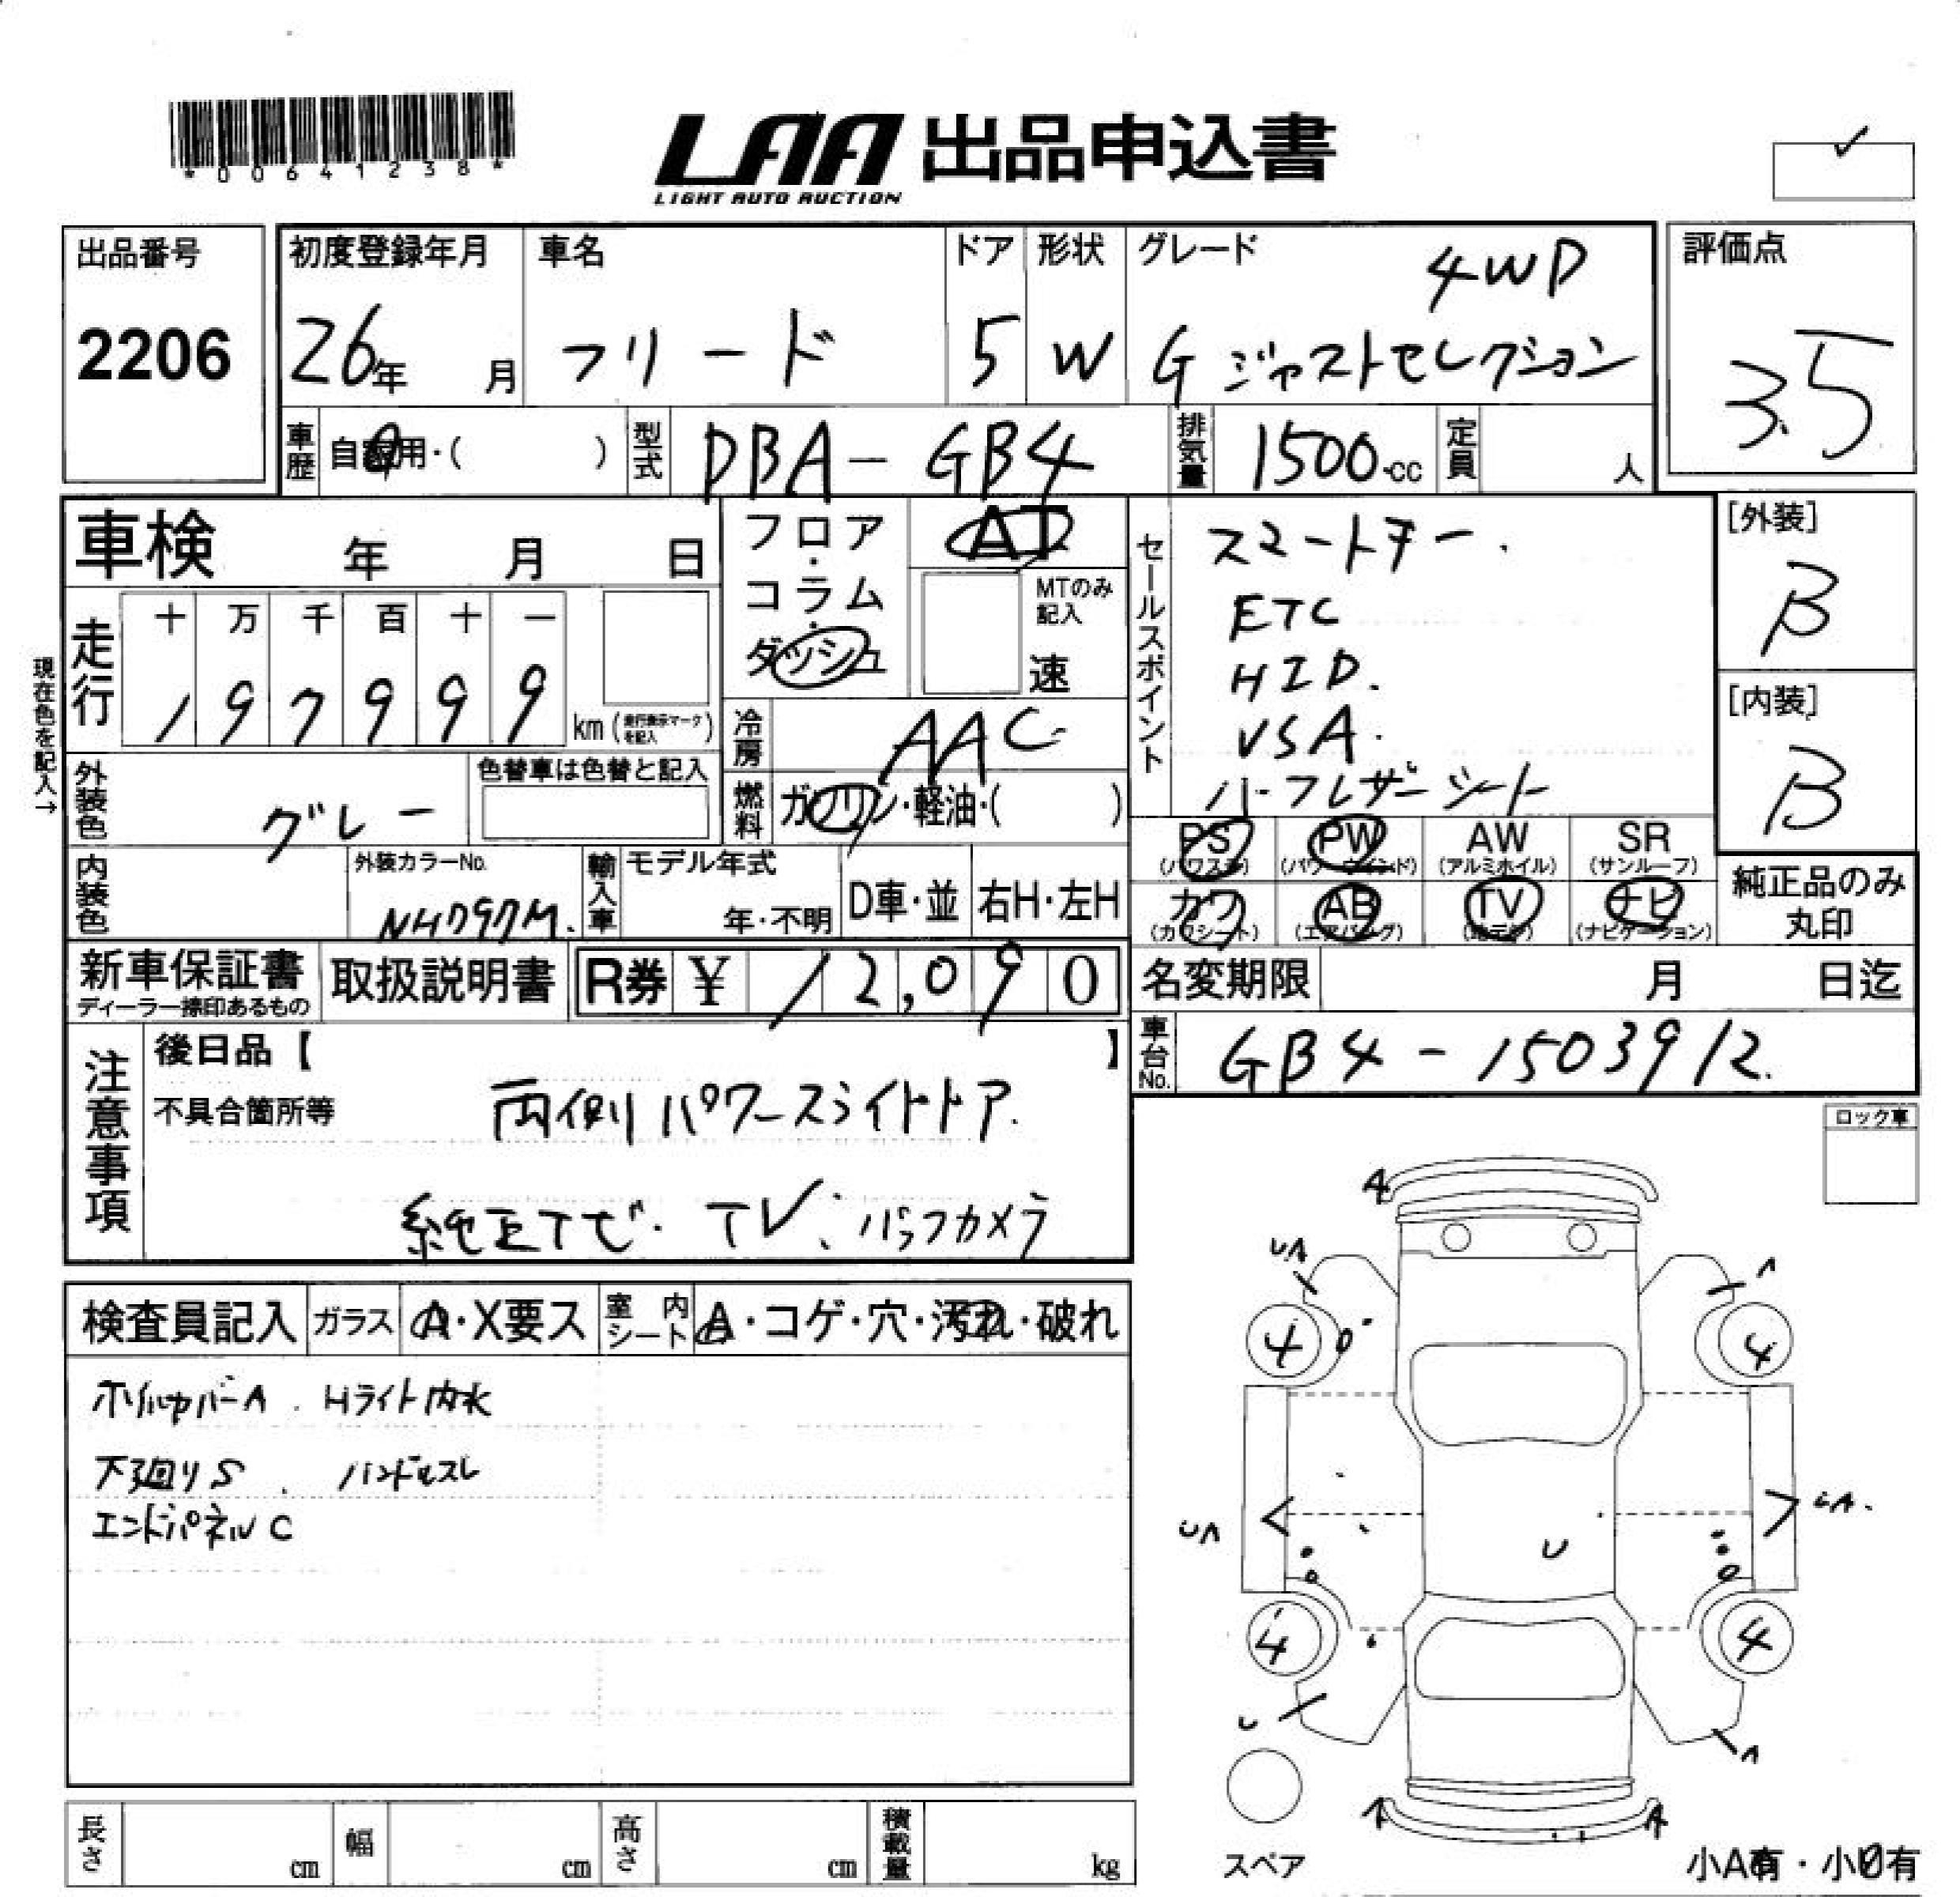 *00641238*
LAA 出品申込書
LIGHT AUTO AUCTION
出品番号
2206
初度登録年月
26年 月
車名
フリード
ドア
5
形状
W
グレード
4WD
G ジャストセレクション
評価点
3.5
車歴
自家用・( )
型式
DBA-GB4
排気量
1500cc
定員
人
車検 年 月 日
フロア・コラム・ダッシュ
AT
MTのみ記入
速
セールスポイント
スマートキー.
ETC
HID.
VSA.
ハーフレザーシート
[外装]
B
[内装]
B
現在色を記入→
走行
十 万 千 百 十 一
1 9 7 9 9 9
km (走行表示マークを記入)
冷房
AAC
燃料
ガソリン・軽油・( )
外装色
グレー
色替車は色替と記入
内装色
外装カラーNo.
NH797M.
輸入車
モデル年式
年・不明
D車・並
右H・左H
PS
(パワステ)
PW
(パワーウインド)
AW
(アルミホイル)
SR
(サンルーフ)
カワ
(カワシート)
AB
(エアバッグ)
TV
(地デジ)
ナビ
(ナビゲーション)
純正品のみ丸印
新車保証書
ディーラー捺印あるもの
取扱説明書
R券 ¥ 12,090
名変期限 月 日迄
車台No.
GB4-1503912.
注意事項
後日品【 】
不具合箇所等
両側パワースライドドア.
純正ナビ. TV. バックカメラ
ロック車
検査員記入
ガラス
A・X要ス
室内シート
A・コゲ・穴・汚れ・破れ
ホイルカバーA. Hライト内水
下廻りS. ハンドルスレ
エンドパネルC
A
UA
A
4
4
UA
UA.
U
4
4
U
A
A
A
スペア
小A有・小U有
長さ cm
幅 cm
高さ cm
積載量 kg